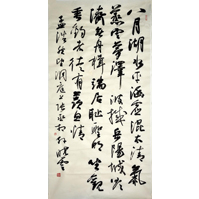 八月湖水平涵虛混太清氣
蒸雲夢澤波撼岳陽城欲
濟無舟楫端居恥聖明坐觀
垂釣者徒有羨魚情
孟浩然望洞庭上張丞相